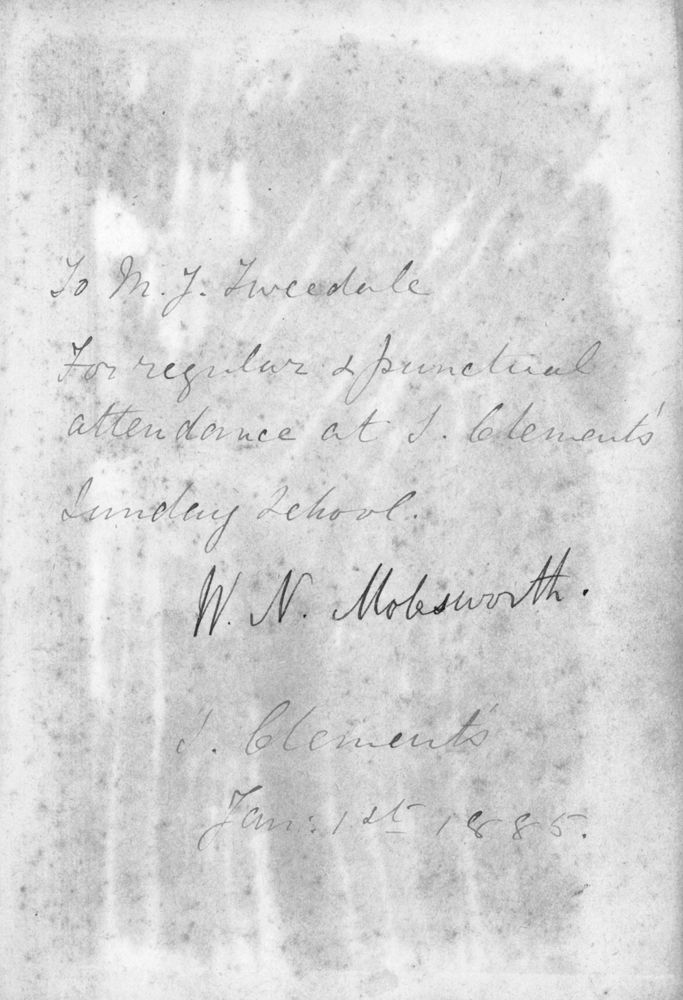 To M. J. Tweedale
For regular & punctual
attendance at S. Clement's
Sunday School.
W. N. Molesworth.
S. Clement's
Jan: 1st 1885.